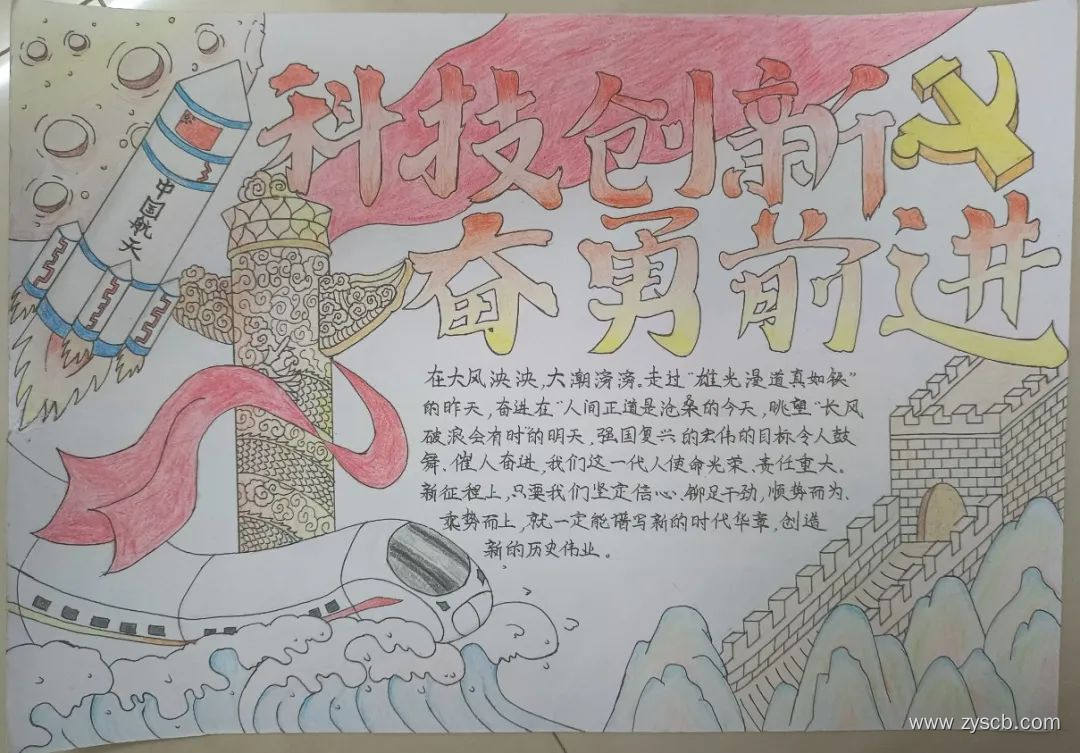 科技创新
奋勇前进
中国航天
在大风泱泱,大潮滂滂。走过"雄光漫道真如铁"
的昨天,奋进在"人间正道是沧桑的今天,眺望"长风
破浪会有时"的明天,强国复兴的宏伟的目标令人鼓
舞、催人奋进,我们这一代人使命光荣、责任重大。
新征程上,只要我们坚定信心、铆足干劲,顺势而为、
乘势而上,就一定能谱写新的时代华章,创造
新的历史伟业。
www.zyscb.com